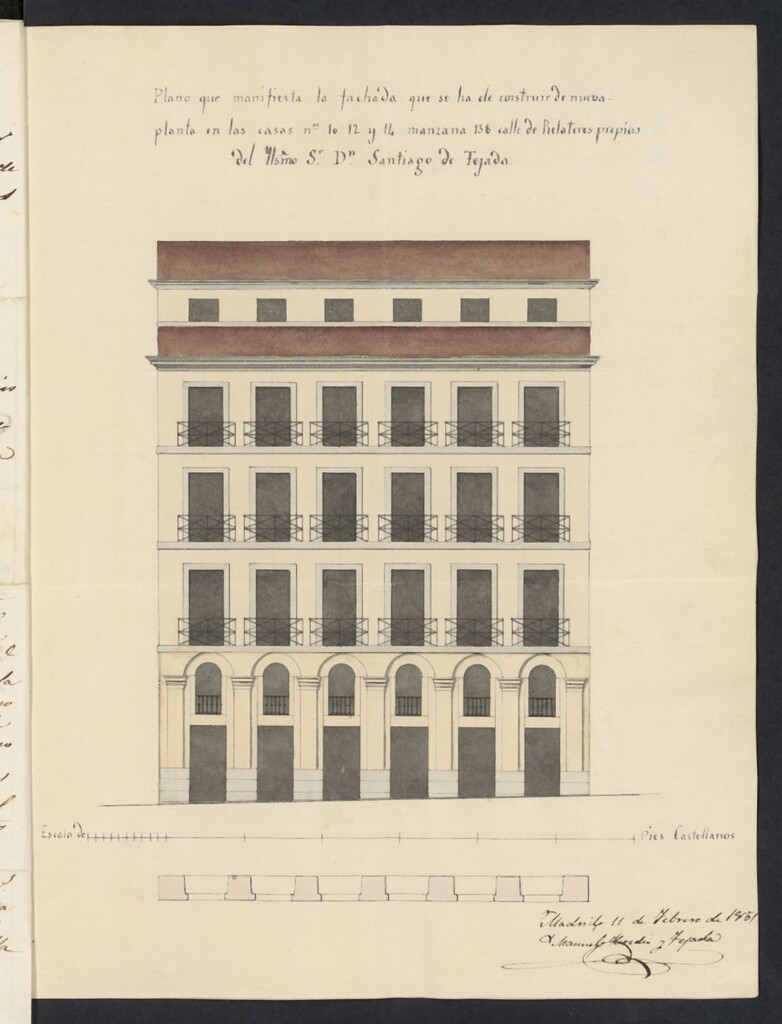 Plano que manifiesta la fachada que se ha de construir de nueva
planta en las casas nos 10 12 y 14 manzana 156 calle de Relatores propias
del Ilsmo Sr. Dn. Santiago de Tejada
Escala de
Pies Castellanos
Madrid 11 de Febrero de 1851
Manuel Heredia y Tejada